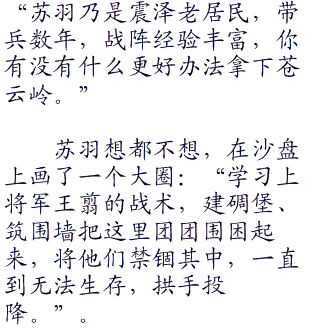 “苏羽乃是震泽老居民，带
兵数年，战阵经验丰富，你
有没有什么更好办法拿下苍
云岭。”
苏羽想都不想，在沙盘
上画了一个大圈：“学习上
将军王翦的战术，建碉堡、
筑围墙把这里团团围困起
来，将他们禁锢其中，一直
到无法生存，拱手投
降。”。